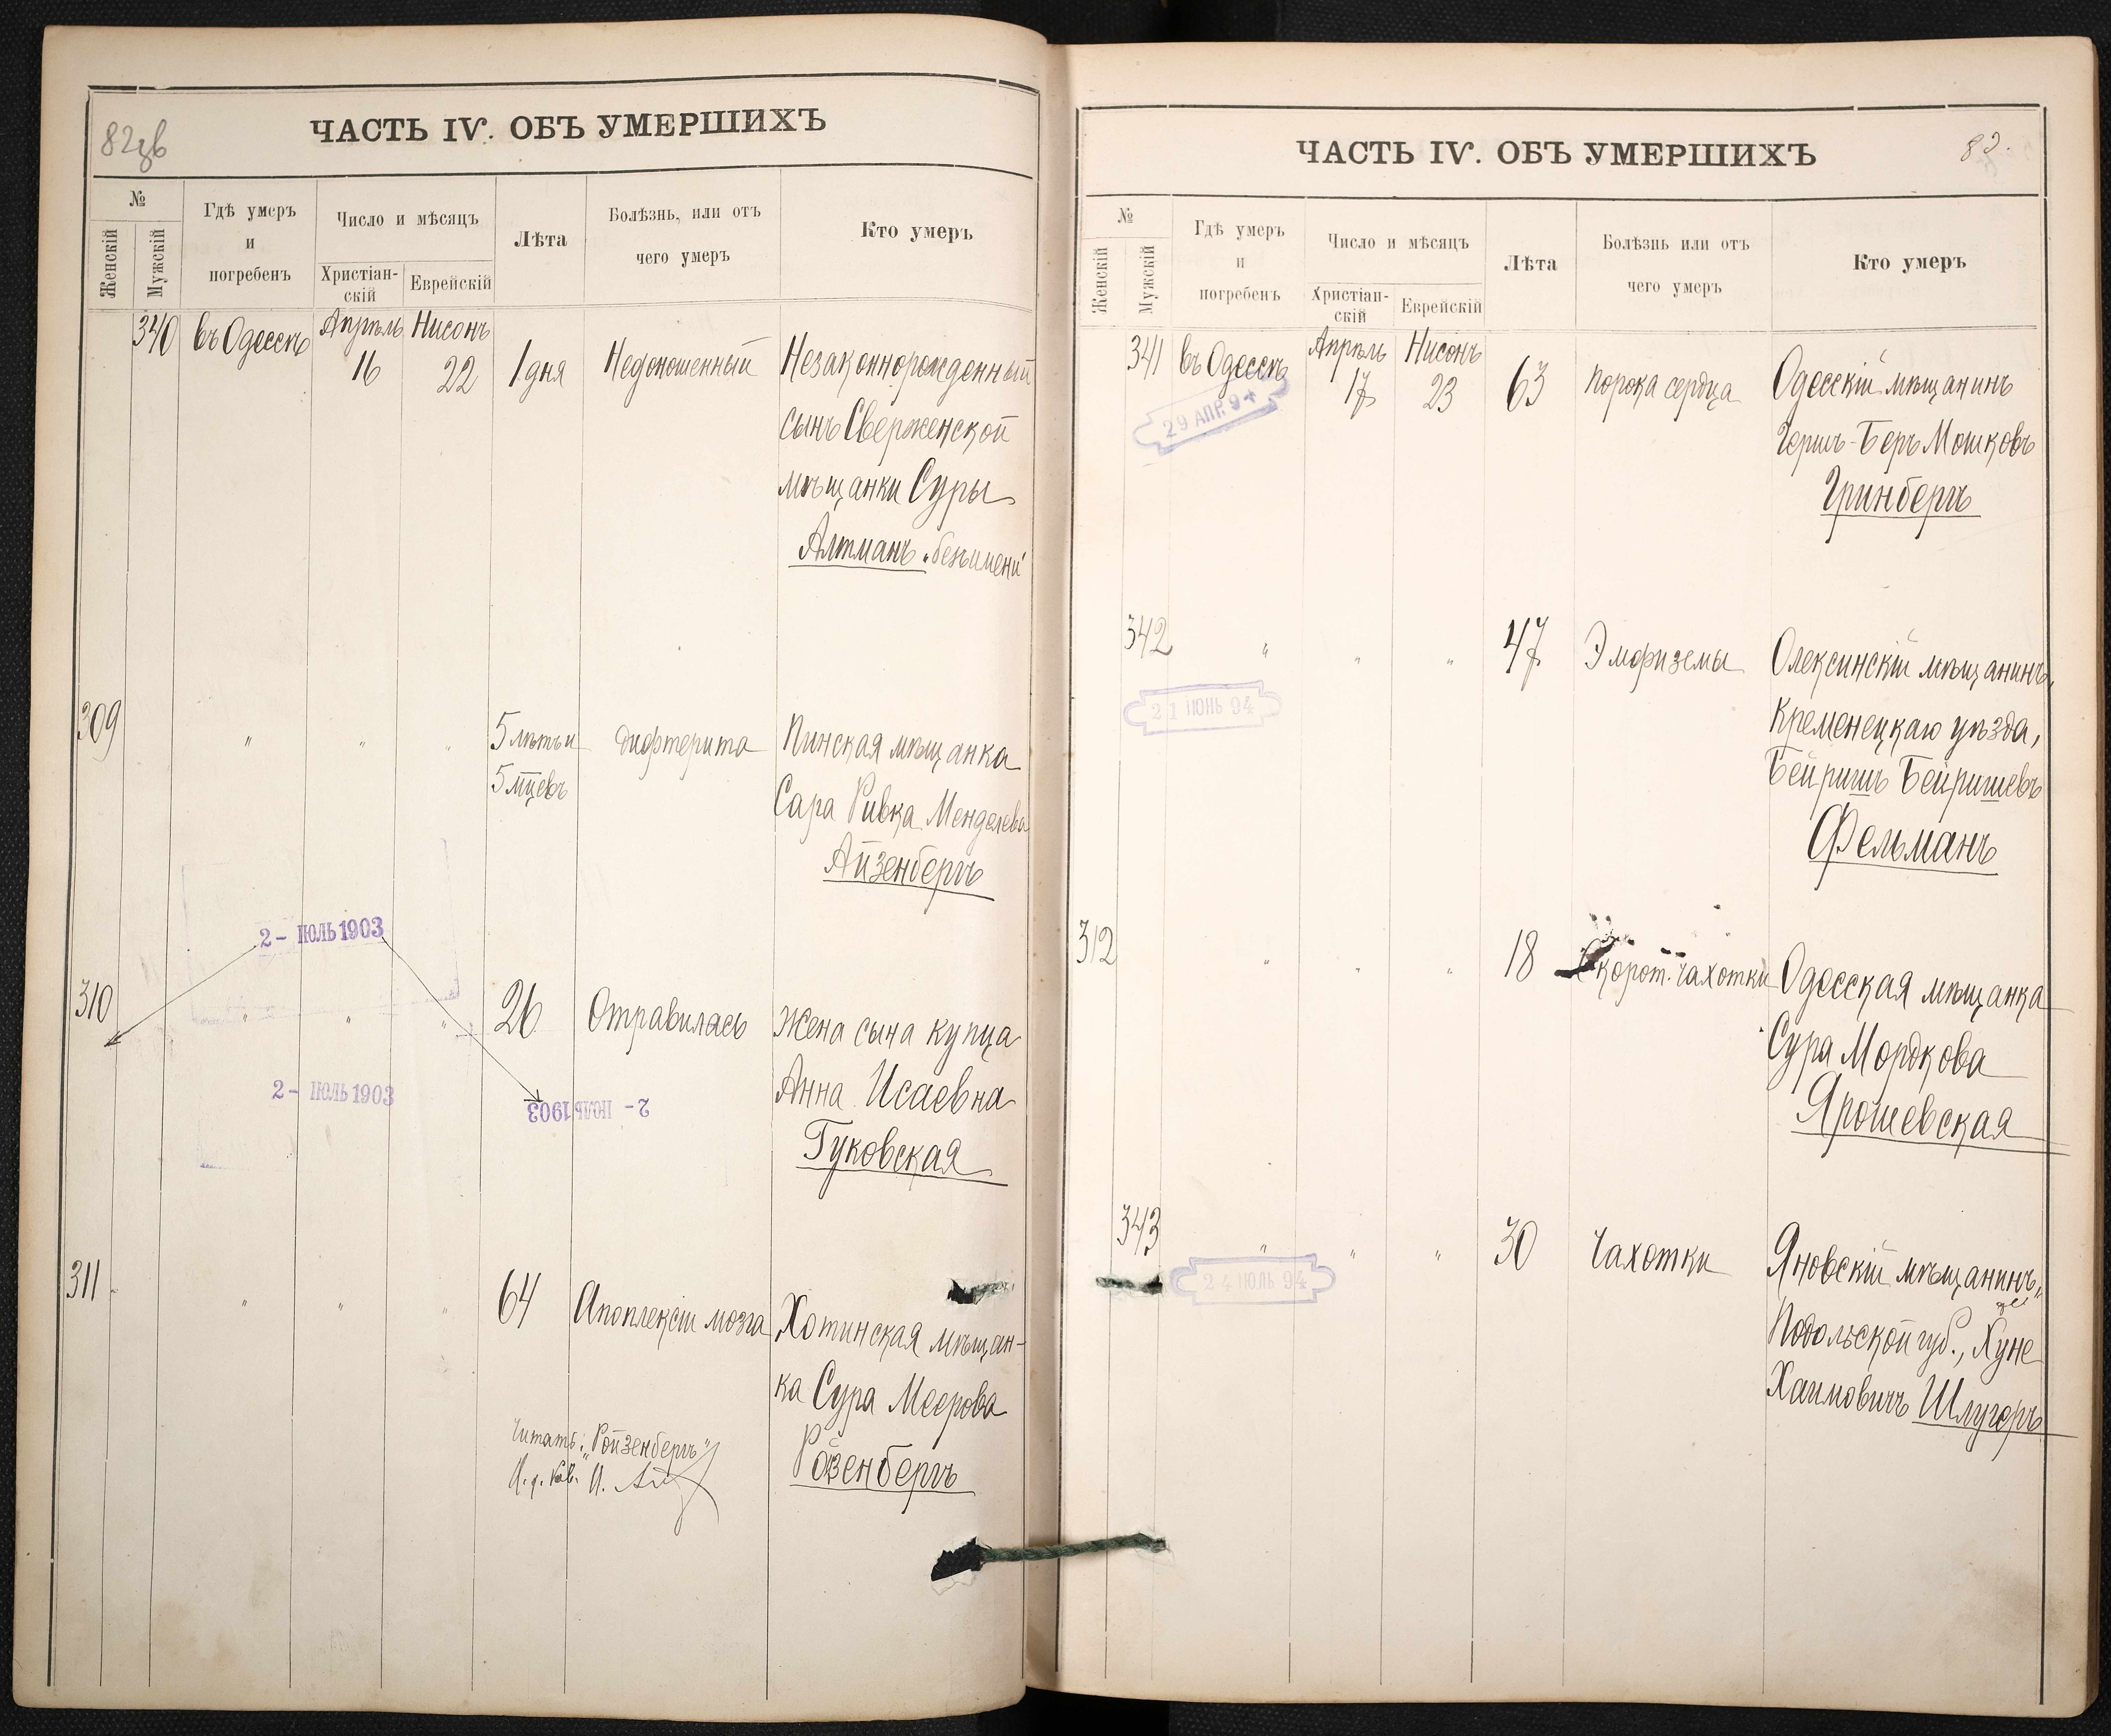 82об
ЧАСТЬ IV. ОБЪ УМЕРШИХЪ
№
Женскій
Мужскій
Гдѣ умеръ
и
погребенъ
Число и мѣсяцъ
Христіан-
скій
Еврейскій
Лѣта
Болѣзнь, или отъ
чего умеръ
Кто умеръ
340 въ Одессѣ Апрѣль 16 Нисонъ 22 1 дня Недоношенный Незаконнорожденный
сынъ Сверженской
мѣщанки Суры
Алтманъ „безъимени"
309 " " " 5 лѣтъ и дифтерита Пинская мѣщанка
5 мцевъ Сара Ривка Менделева
Айзенбергъ
2- ІЮЛЬ 1903
310 " " " 26 Отравилась Жена сына купца
2- ІЮЛЬ 1903 2- ІЮЛЬ 1903 Анна Исаевна
Гуковская
311 " " " 64 Апоплексіи мозга Хотинская мѣщан-
ка Сура Меерова
Читать: „Ройзенбергъ" Розенбергъ
И. д. Каз. И.
83.
ЧАСТЬ IV. ОБЪ УМЕРШИХЪ
№
Женскій
Мужскій
Гдѣ умеръ
и
погребенъ
Число и мѣсяцъ
Христіан-
скій
Еврейскій
Лѣта
Болѣзнь или отъ
чего умеръ
Кто умеръ
341 въ Одессѣ Апрѣль 17 Нисонъ 23 63 порока сердца Одесскій мѣщанинъ
29 АПР. 94 Гершъ-Беръ Мошковъ
Гринбергъ
342 " " " 47 Эмфиземы Олексинскій мѣщанинъ,
21 ІЮНЬ 94 Кременецкаго уѣзда,
Бейришъ Бейришевъ
Фельманъ
312 " " " 18 Скорот. чахотки Одесская мѣщанка
Сура Мордкова
Ярошевская
343 " " " 30 Чахотки Яновскій мѣщанинъ,
24 ІЮЛЬ 94 Подольской губ., Хуне
Хаимовичъ Шлугеръ